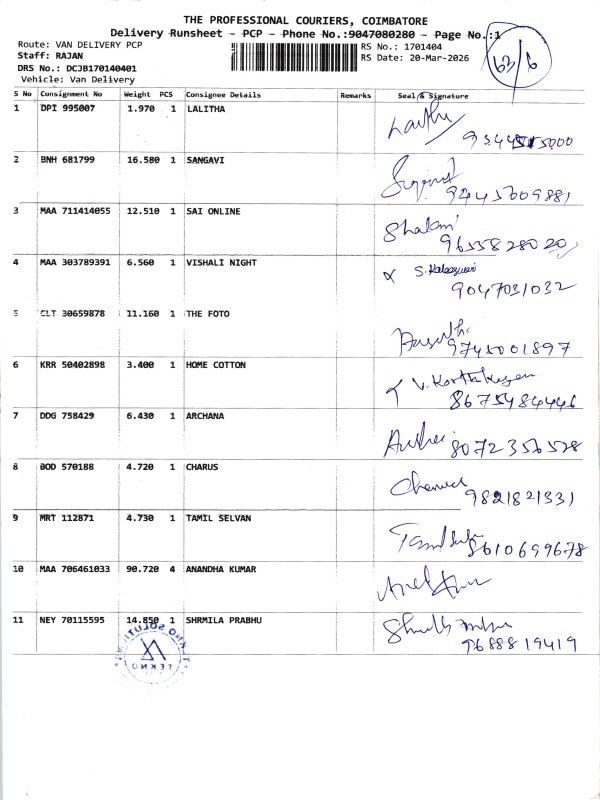 THE PROFESSIONAL COURIERS, COIMBATORE
Delivery Runsheet - PCP - Phone No.:9047080280 - Page No.:1
Route: VAN DELIVERY PCP
Staff: RAJAN
DRS No.: DCJB170140401
Vehicle: Van Delivery
RS No.: 1701404
RS Date: 20-Mar-2026
63/6
S No Consignment No Weight PCS Consignee Details Remarks Seal & Signature
1 DPI 995007 1.970 1 LALITHA
2 BNH 681799 16.580 1 SANGAVI
9445009881
3 MAA 711414055 12.510 1 SAI ONLINE
9655828020
4 MAA 303789391 6.560 1 VISHALI NIGHT
9047031032
5 CLT 30659878 11.160 1 THE FOTO
9745001897
6 KRR 50402898 3.400 1 HOME COTTON
8675484446
7 DDG 758429 6.430 1 ARCHANA
8072356528
8 BOD 570188 4.720 1 CHARUS
9821821331
9 MRT 112871 4.730 1 TAMIL SELVAN
8610699678
10 MAA 706461033 90.720 4 ANANDHA KUMAR
11 NEY 70115595 14.850 1 SHRMILA PRABHU
9688819419
TEKNO